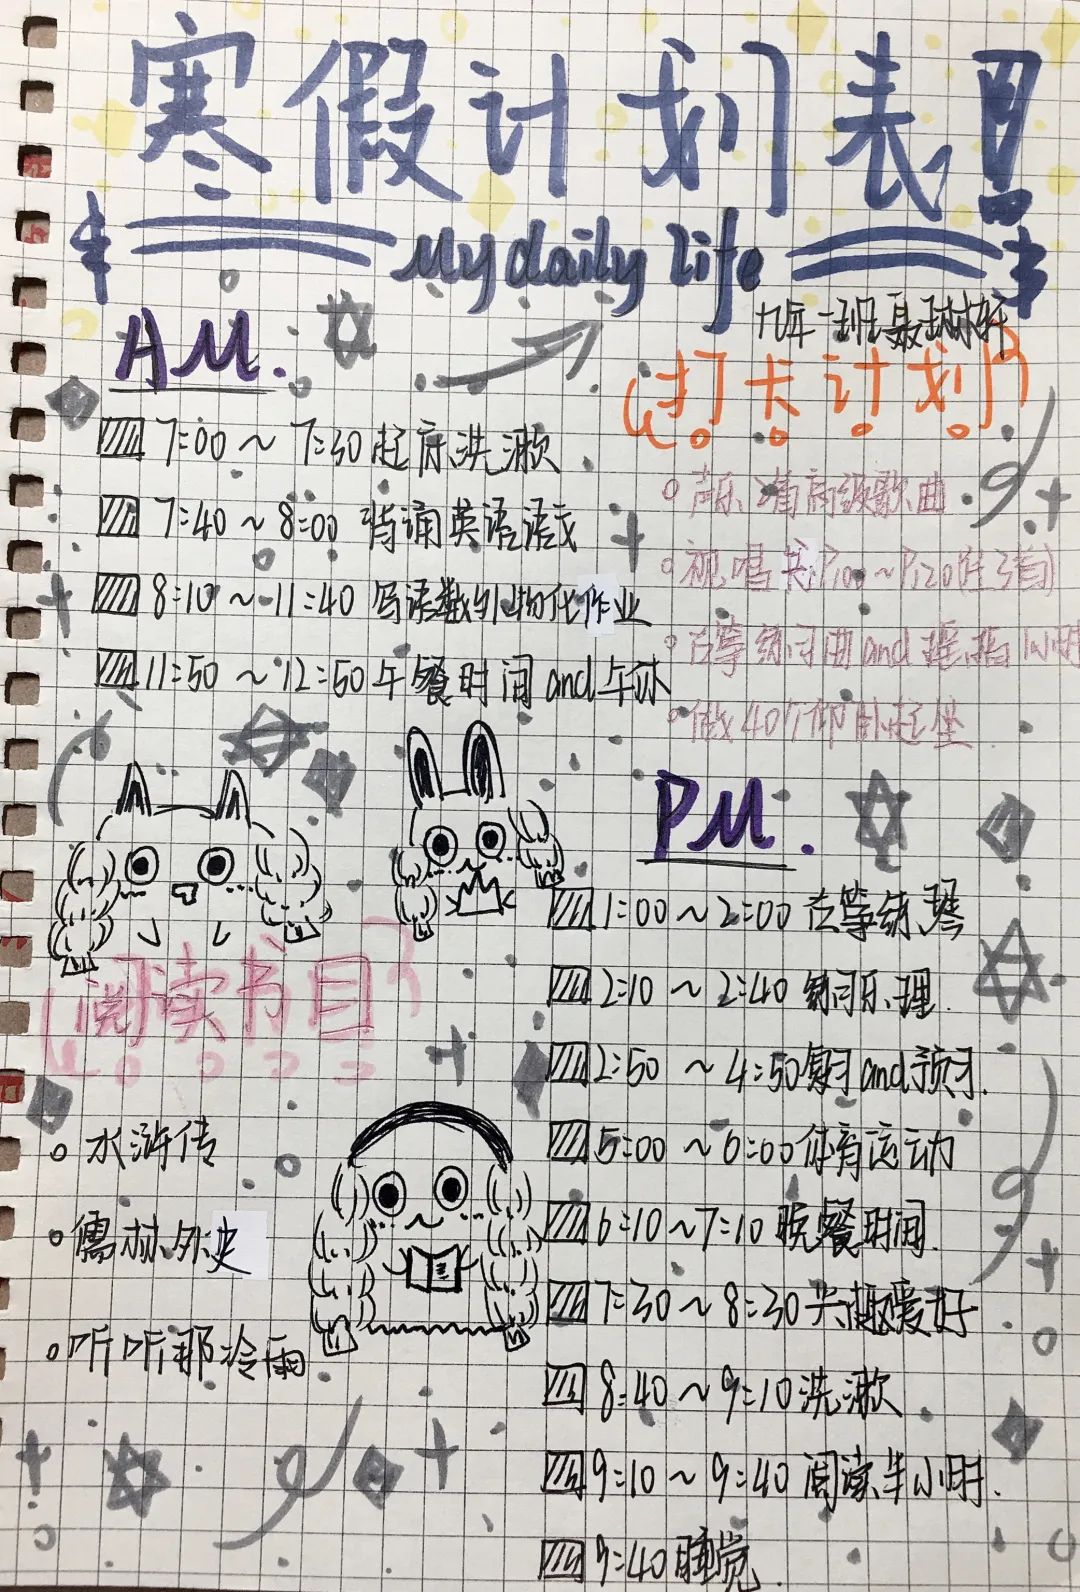 寒假计划表!
My daily life
九年一班聂琳轩
AM.
7:00~7:30起床洗漱
7:40~8:00 背诵英语语文
8:10~11:40 写语数外物化作业
11:50~12:50午餐时间and午休
打卡计划
声乐2首高级歌曲
视唱
古筝练习曲and摇指1小时
做40个仰卧起坐
PM.
1:00~2:00古筝练琴
2:10~2:40 练习乐理.
2:50~4:50复习and预习.
5:00~6:00体育运动
6:10~7:10 晚餐时间.
7:30~8:30兴趣爱好
8:40~9:10洗漱
9:10~9:40阅读半小时.
9:40睡觉.
阅读书目
水浒传
儒林外史
听听那冷雨